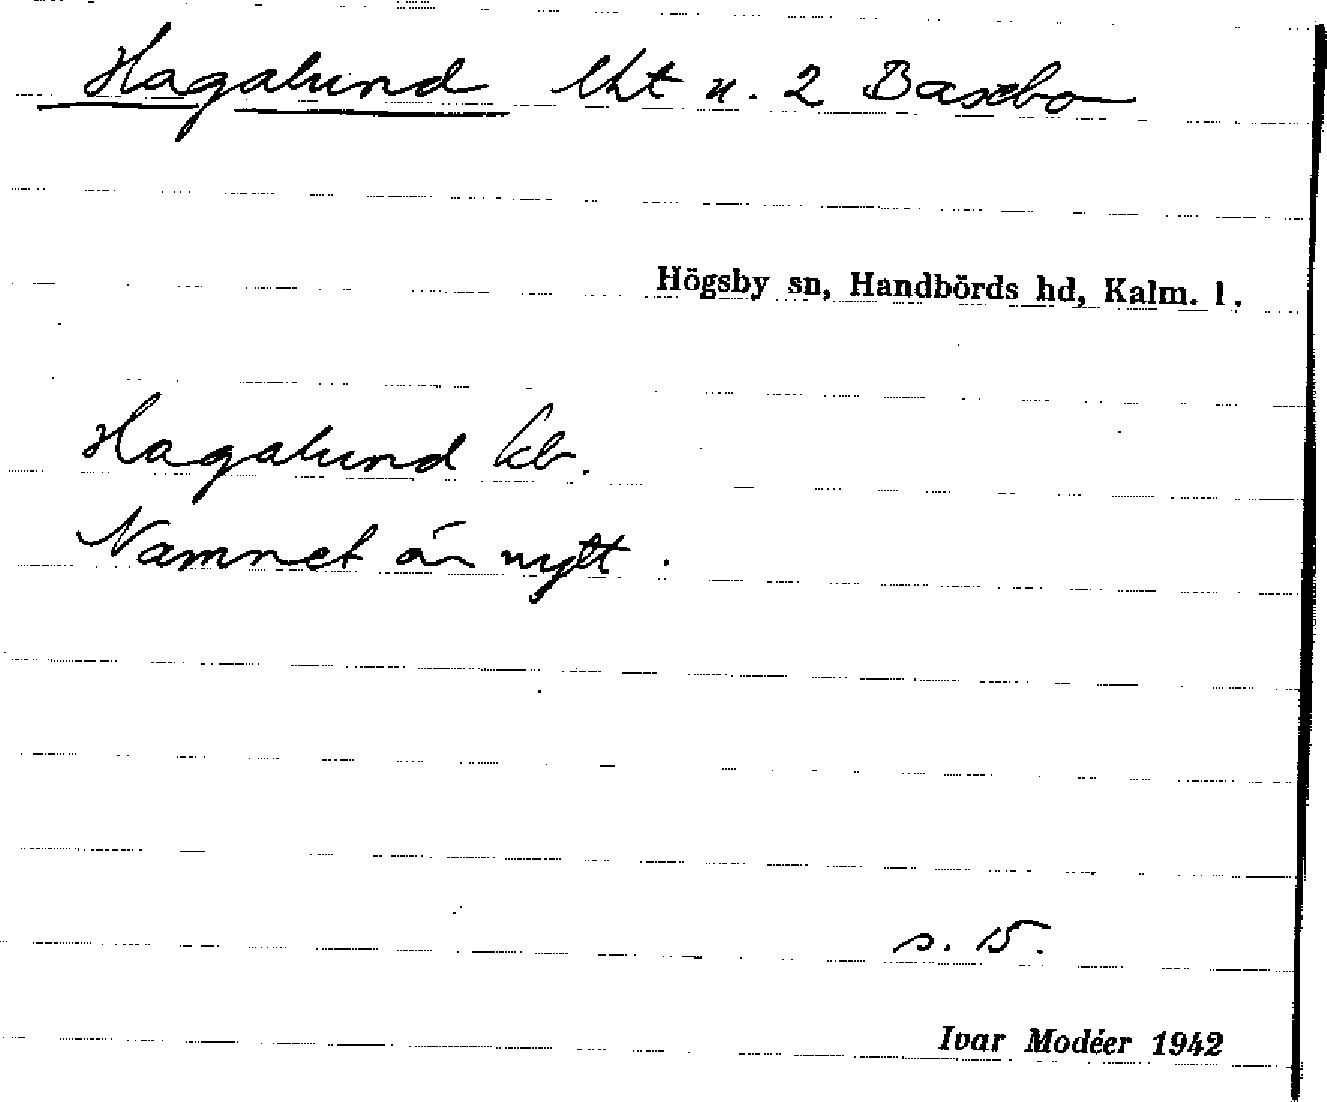 Hagalund lht u. 2 Baxebo
Högsby sn, Handbörds hd, Kalm. l.
Hagalund kb.
Namnet är nytt.
s. 15.
Ivar Modéer 1942